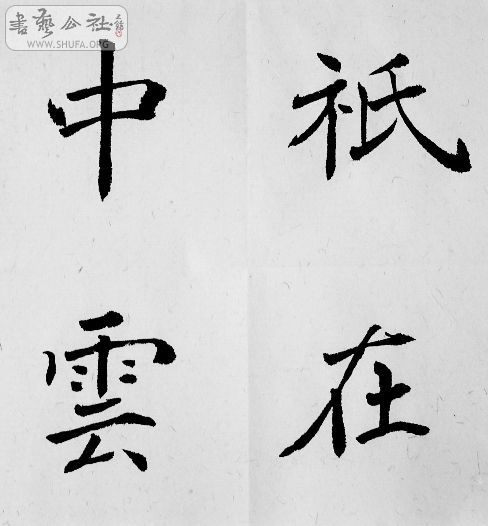 祇在
中雲
書藝公社
WWW.SHUFA.ORG